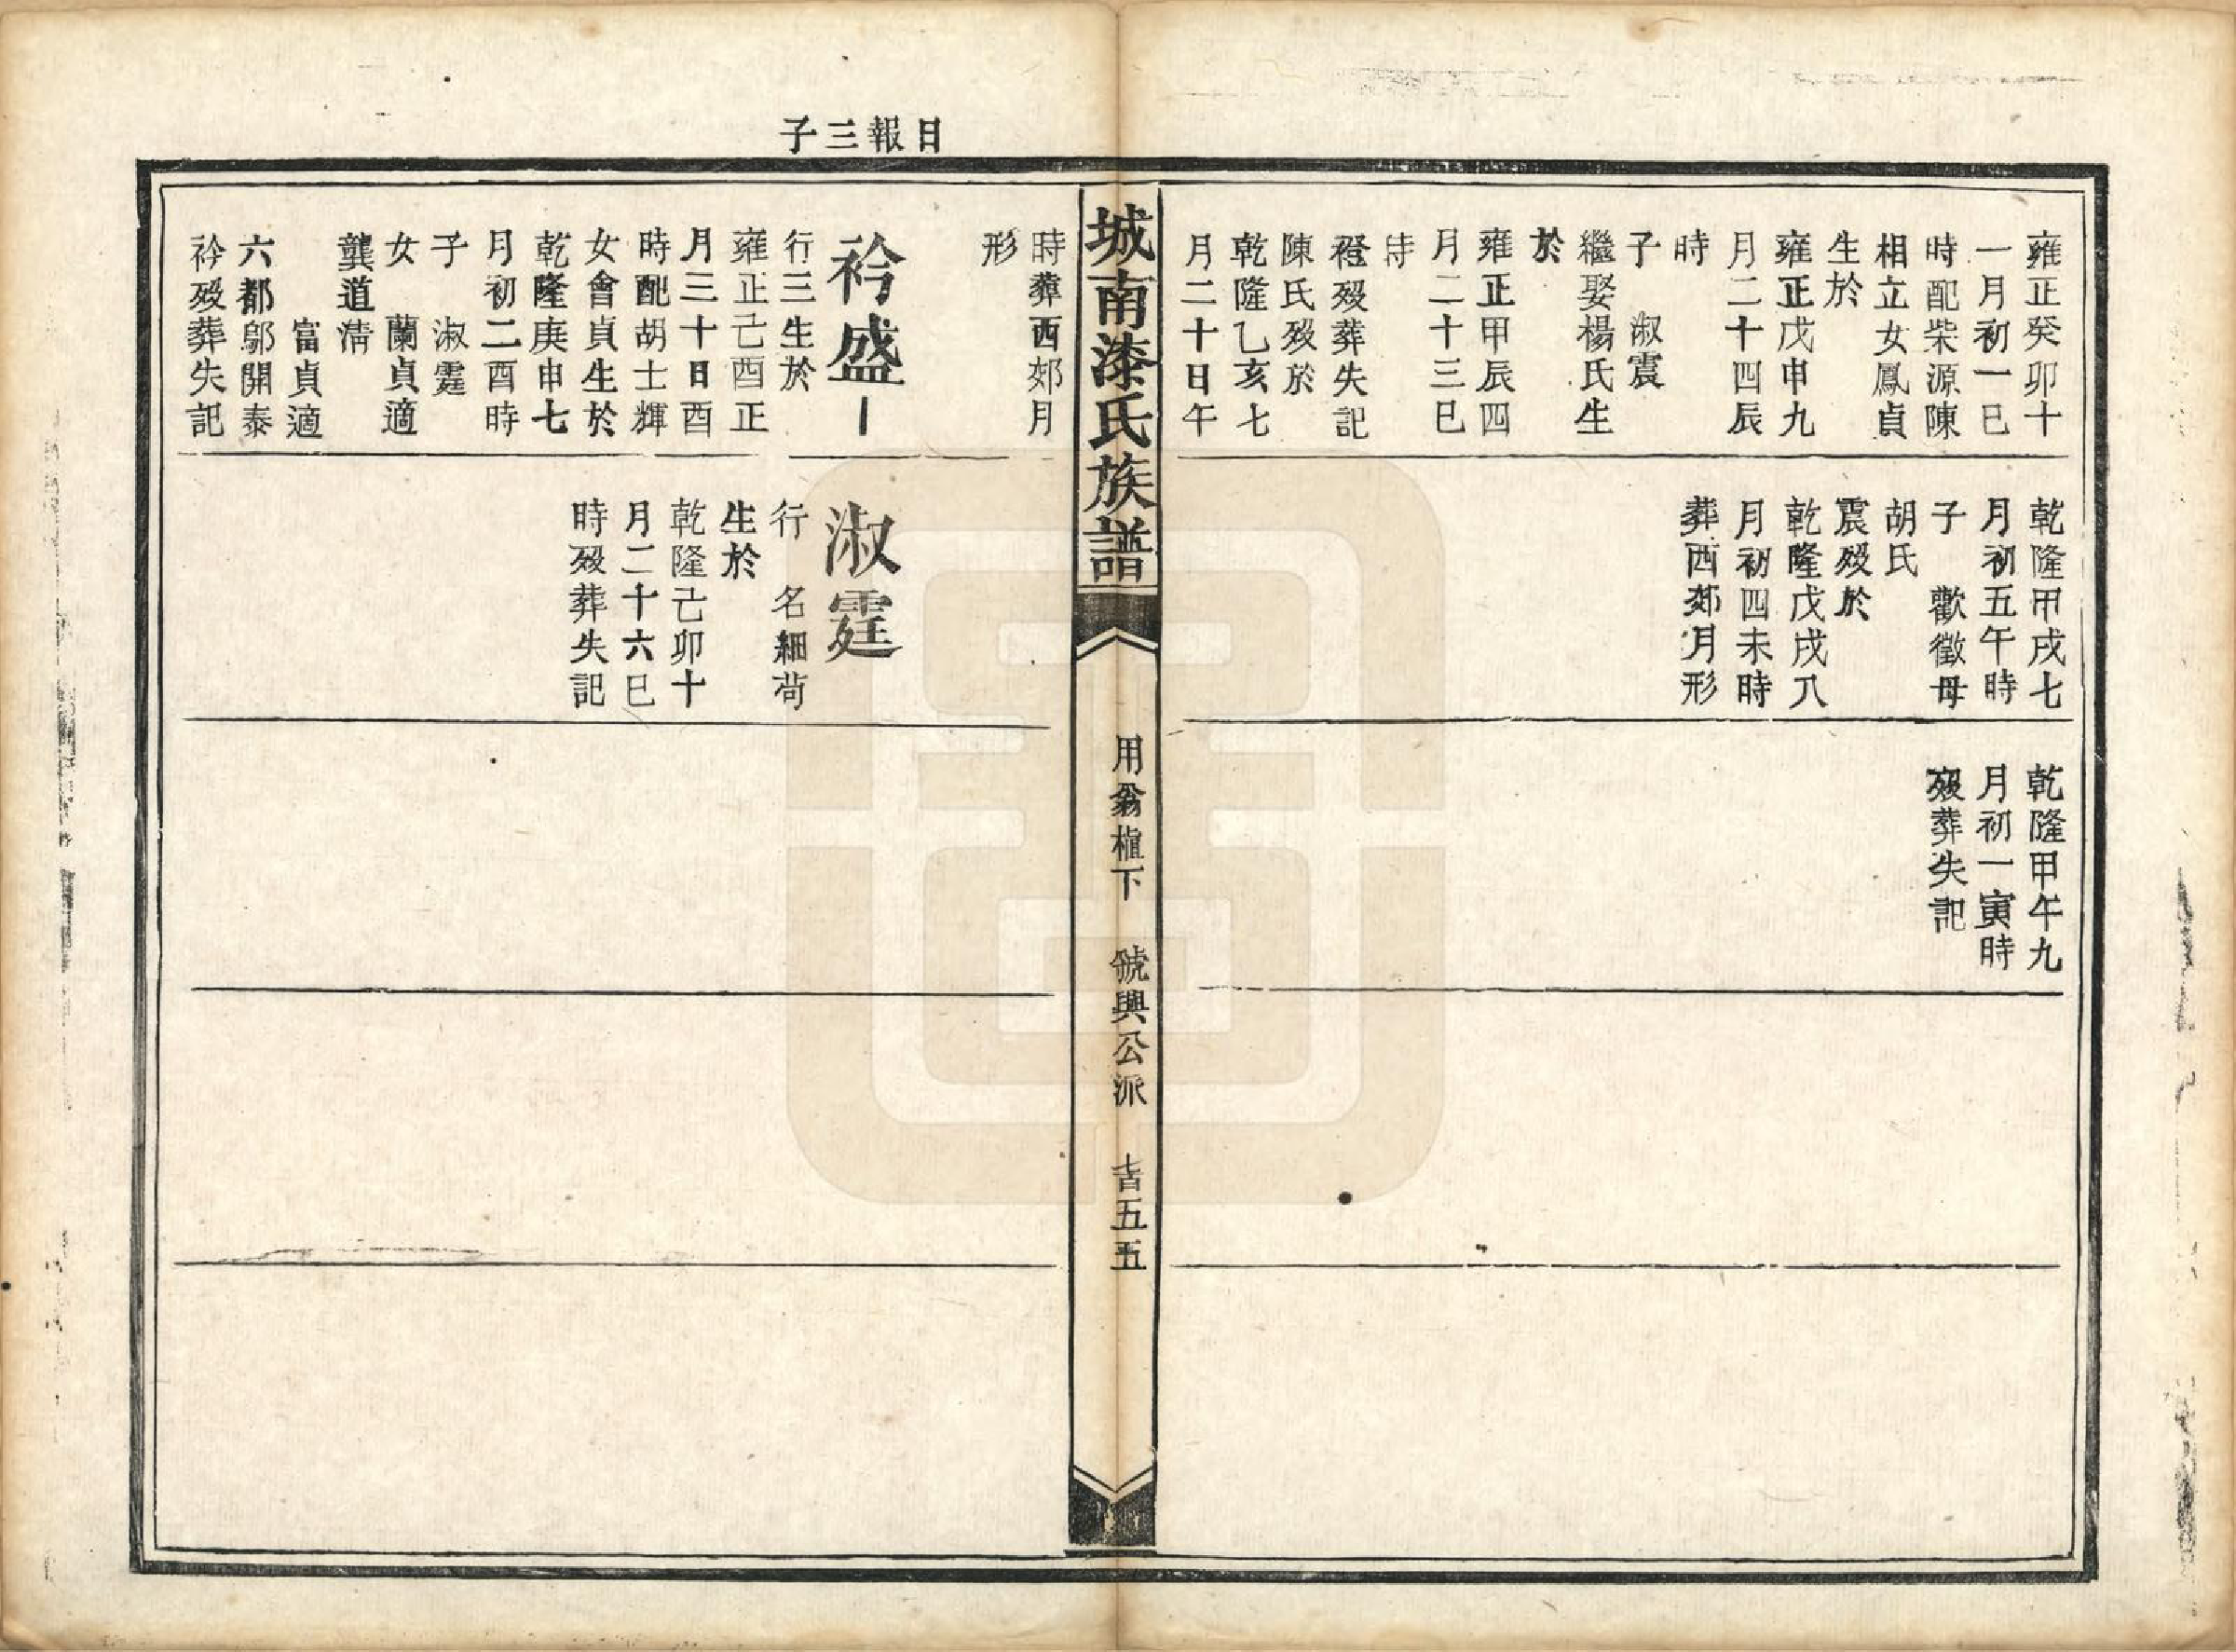 雍正癸卯十
一月初一巳
時配柴源陳
相立女鳳貞
生於
雍正戊申九
月二十四辰
時
子　淑震
繼娶楊氏生
於
雍正甲辰四
月二十三巳
時
㲪葬失記
陳氏歿於
乾隆乙亥七
月二十日午
乾隆甲戌七
月初五午時
子　歡徵母
胡氏
震歿於
乾隆戊戌八
月初四未時
葬西郊月形
乾隆甲午九
月初一寅時
歿葬失記
城南漆氏族譜
用翁樞下　號興公派　吉五五
日報三子
時葬西郊月
形
衿盛
行三生於
雍正己酉正
月三十日酉
時配胡士輝
女會貞生於
乾隆庚申七
月初二酉時
子　淑霆
女　蘭貞適
龔道淸
富貞適
六都鄔開泰
衿歿葬失記
淑霆
行　名細苟
生於
乾隆己卯十
月二十六巳
時歿葬失記